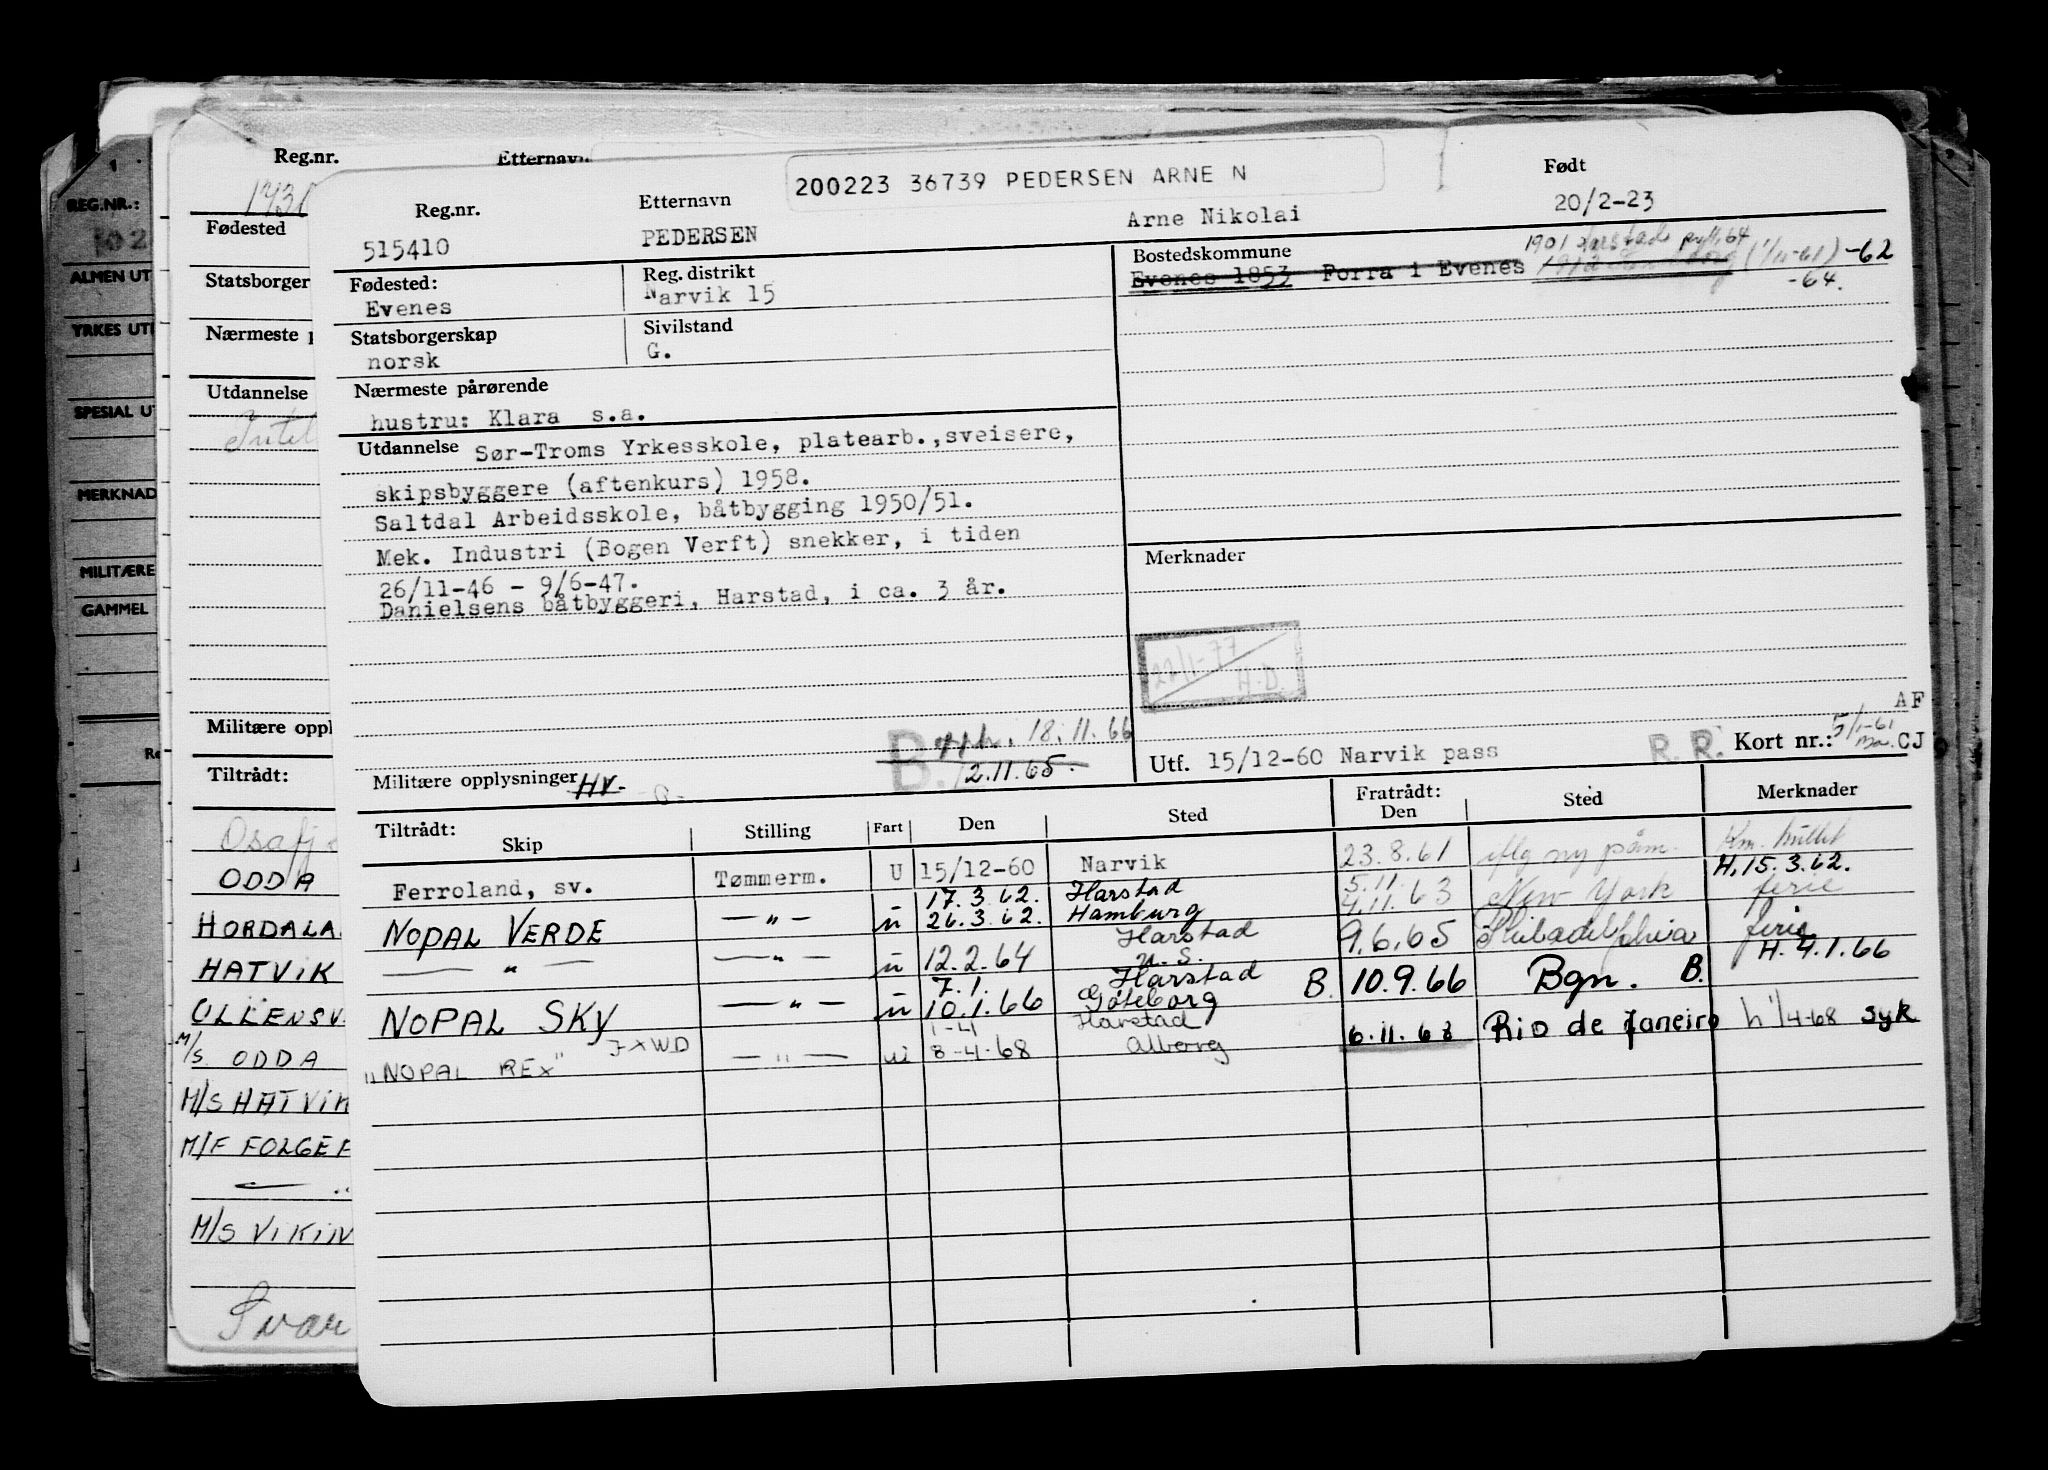 REG.NR.:
102
ALMEN UT
YRKES UT
SPESIAL U
MERKNAD
MILITÆRE
GAMMEL
Reg.nr. Etternavn
Fødested
Statsborger
Nærmeste p
Utdannelse
Militære oppl
Tiltrådt:
ODDA
HORDALA
HATVIK
ULLENSV
M/S ODDA
M/S HATVIK
M/F FOLGEF
M/S VIKIN
Svar
200223 36739 PEDERSEN ARNE N
Reg.nr. Etternavn Født
515410 PEDERSEN Arne Nikolai 20/2-23
Fødested: Reg. distrikt Bostedskommune
Evenes Narvik 15 Evenes 1853 Forra i Evenes 1901 Harstad 64 (1/11-61) -62
-64.
Statsborgerskap Sivilstand
norsk G.
Nærmeste pårørende
hustru: Klara s.a.
Utdannelse Sør-Troms Yrkesskole, platearb.,sveisere,
skipsbyggere (aftenkurs) 1958.
Saltdal Arbeidsskole, båtbygging 1950/51.
Mek. Industri (Bogen Verft) snekker, i tiden
26/11-46 - 9/6-47.
Danielsens båtbyggeri, Harstad, i ca. 3 år.
Merknader
22/1-77
H.D.
AF
B. opph. 18.11.66
12.11.65.
Militære opplysninger HV-
Utf. 15/12-60 Narvik pass R. R. Kort nr.: 5/1-61 CJ
Tiltrådt: Fratrådt:
Skip Stilling Fart Den Sted Den Sted Merknader
Ferroland, sv. Tømmerm. U 15/12-60 Narvik 23.8.61 iflg ny påm.
H, 15.3.62.
17.3.62. Harstad 5.11.
NOPAL VERDE — " — u 26.3.62. Hamburg 4.11.63 New York ferie
Harstad
— " — — " — u 12.2.64 U.S. 9.6.65 Philadelphia ferie
H. 4.1.66
7.1. Harstad
NOPAL SKY — " — u 10.1.66 Gøteborg B. 10.9.66 Bgn. B.
1-4 Harstad
"NOPAL REX" JXWD — " — u 8-4-68 Alborg 6.11.68 Rio de Janeiro h 1/4-68 syk